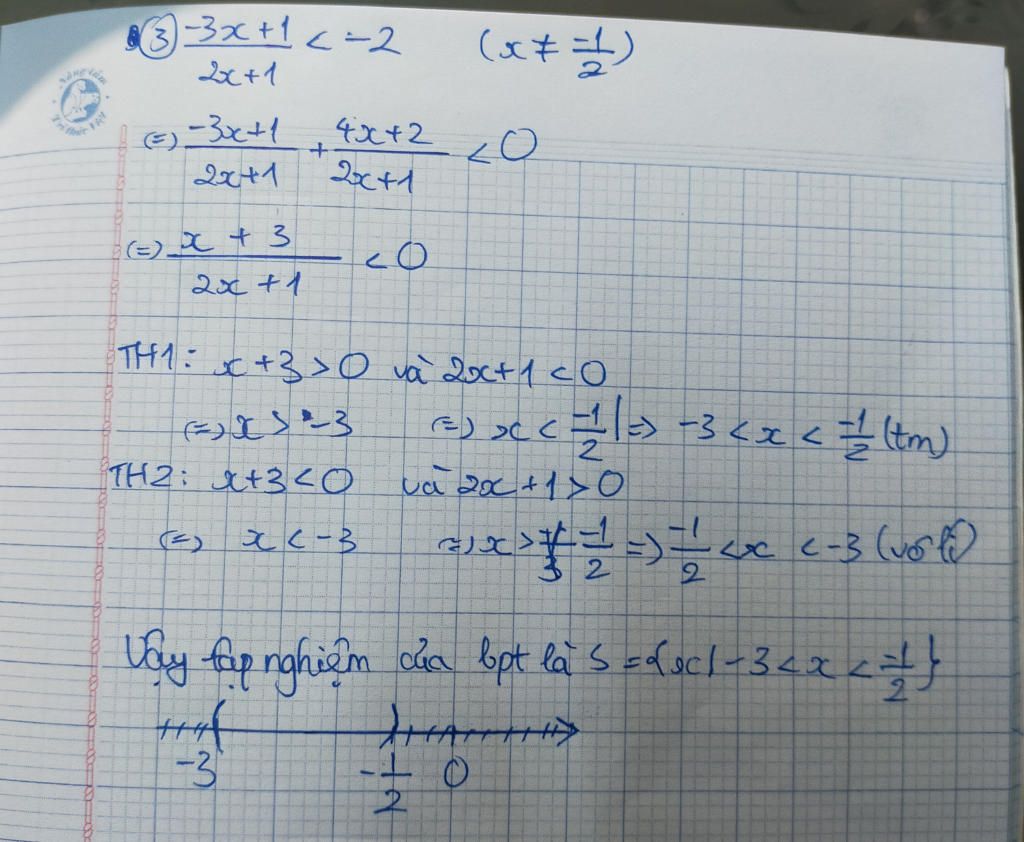 ③ -3x+1/2x+1 < -2 (x ≠ -1/2)
Nâng tầm
Tri thức Việt
(=) -3x+1/2x+1 + 4x+2/2x+1 < 0
(=) x + 3/2x + 1 < 0
TH1: x+3 > 0 và 2x+1 < 0
(=) x > -3 (=) x < -1/2 | => -3 < x < -1/2 (tm)
TH2: x+3 < 0 và 2x+1 > 0
(=) x < -3 (=) x > -1/2 => -1/2 < x < -3 (vô lí)
Vậy tập nghiệm của bpt là S = {x| -3 < x < -1/2}
-3 -1/2 0